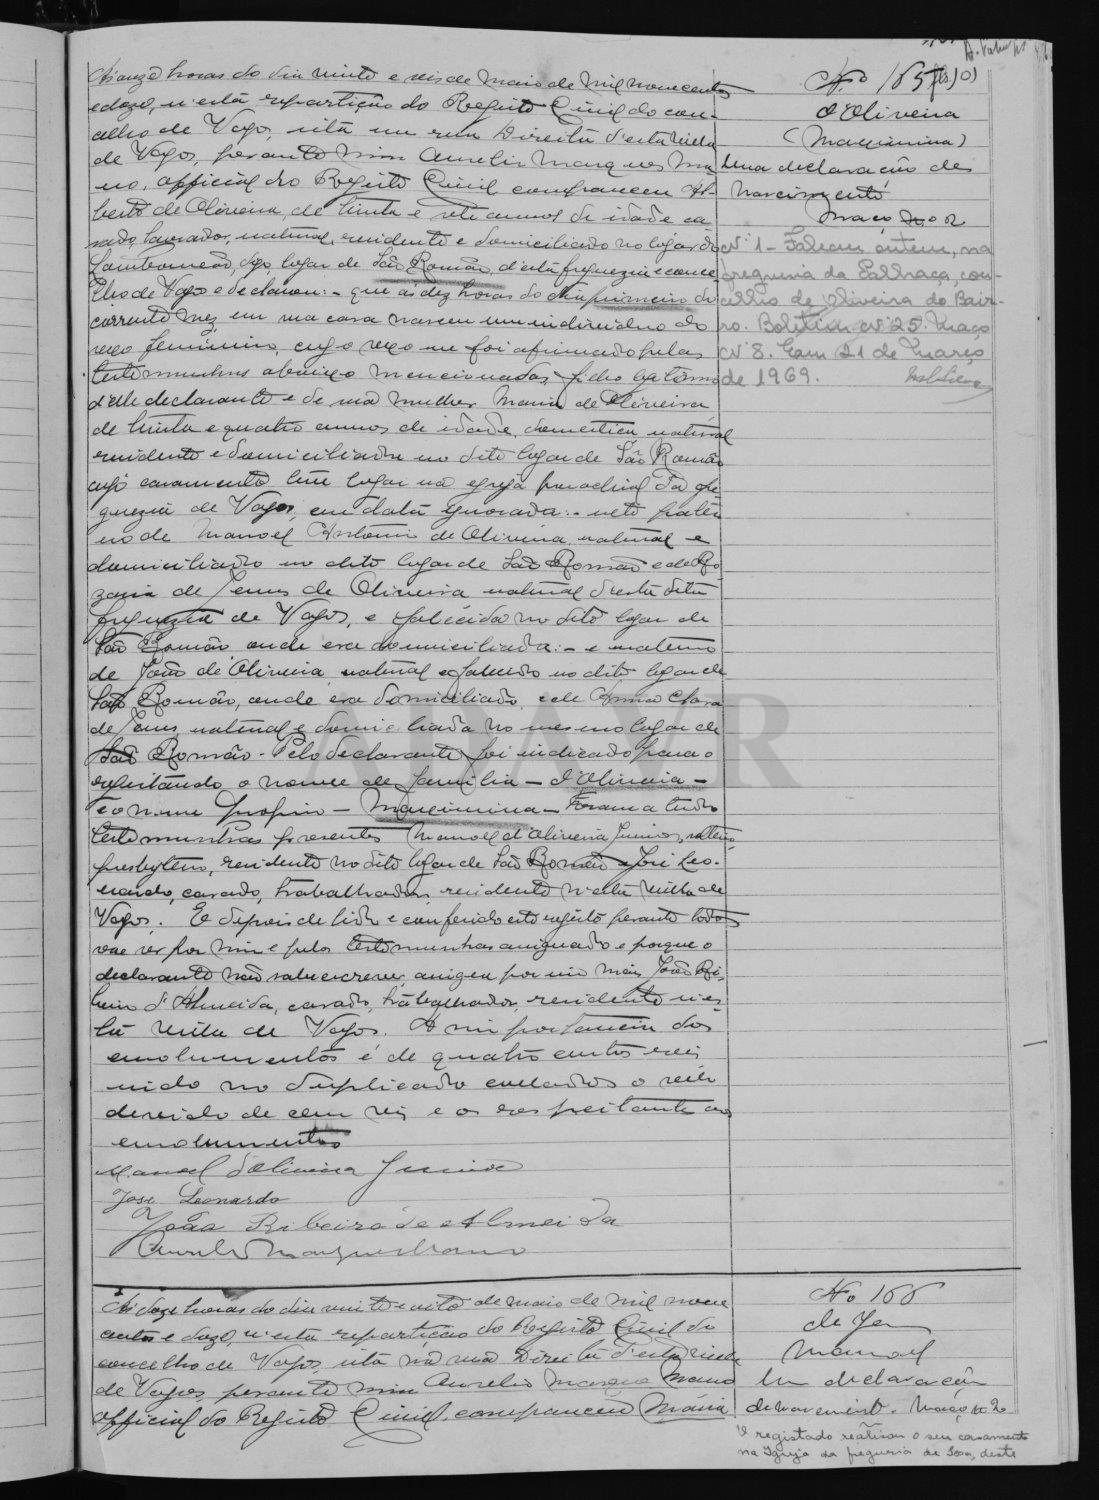 Às onze horas do dia vinte e seis de Maio de Mil novecentos
e doze, n'esta repartição do Registo Civil do con-
celho de Vagos, sita na rua Direita d'esta villa
de Vagos, perante mim Aurelio Marques Ma
no, official do Registo Civil compareceu Al-
berto de Oliveira, de trinta e sete annos de idade ca
sado, lavrador, natural, residente e domiciliado no logar do
digo, logar de São Romão, d'esta freguezia e conce
lho de Vagos e declarou: - que ás dez horas do dia primeiro do
corrente mez, em sua casa nasceu um individuo do
sexo feminino, cujo sexo me foi afirmado pelas
testemunhas abaixo mencionadas, filho legitimo
d'elle declarante e de sua mulher Maria de Oliveira
de trinta e quatro annos de idade, domestica, natural
residente e domiciliada no dito logar de São Romão
cujo casamento teve logar na egreja parochial da fre
guezia de Vagos, em data ignorada: - neto pater
no de Manoel Antonio de Oliveira, natural e
domiciliado no dito logar de São Romão e de Ro
zaria de Jesus de Oliveira natural d'esta dita
freguezia de Vagos, e falecida no dito logar de
São Romão, onde era domiciliada: - e materno
de João de Oliveira, natural e falecido no dito logar de
São Romão, onde era domiciliado, e de Anna Clara
de Jesus, natural e domiciliada no mesmo logar de
São Romão - Pelo declarante foi indicado para o
registando, o nome de familia - d'Oliveira -
e o nome proprio - Maximina - Foram a tudo
testemunhas presentes Manoel d'Oliveira Junior, solteiro
presbytero, residente no dito logar de São Romão e José Leo-
nardo, casado, trabalhador, residente n'esta villa de
Vagos. E depois de lido e conferido este registo perante todos
vae ser por mim e pelas testemunhas assignado e porque o
declarante não sabe escrever, assigna por elle mais João Ri-
beiro d'Almeida, casado, trabalhador, residente n'es-
ta villa de Vagos. A importancia dos
emolumentos é de quatro centos reis
sendo no duplicado collados o sello
devido de cem reis e os respeitantes aos
emolumentos
Manoel d'Oliveira Junior
José Leonardo
João Ribeiro de Almeida
Aurelio Marques Mano
Nº 165
d'Oliveira
(Maximina)
Uma declaração de
Nascimento
Maço nº 2
Nº 1 - Faleceu ontem, na
freguesia da Palhaça, con-
celho de Oliveira do Bair-
ro. Boletim nº 25. Maço
Nº 8. Em 21 de Março
de 1969.
Às doze horas do dia vinte e oito de maio de mil nove
centos e doze, n'esta repartição do Registo Civil do
concelho de Vagos, sita na rua Direita d'esta villa
de Vagos, perante mim Aurelio Marques Mano
official do Registo Civil, compareceu Maria
Nº 166
de Jesus
Manoel
Um declaração
de nascimento. Maço nº 2
O registado realisou o seu casamento
na Igreja da freguesia de Sosa, deste